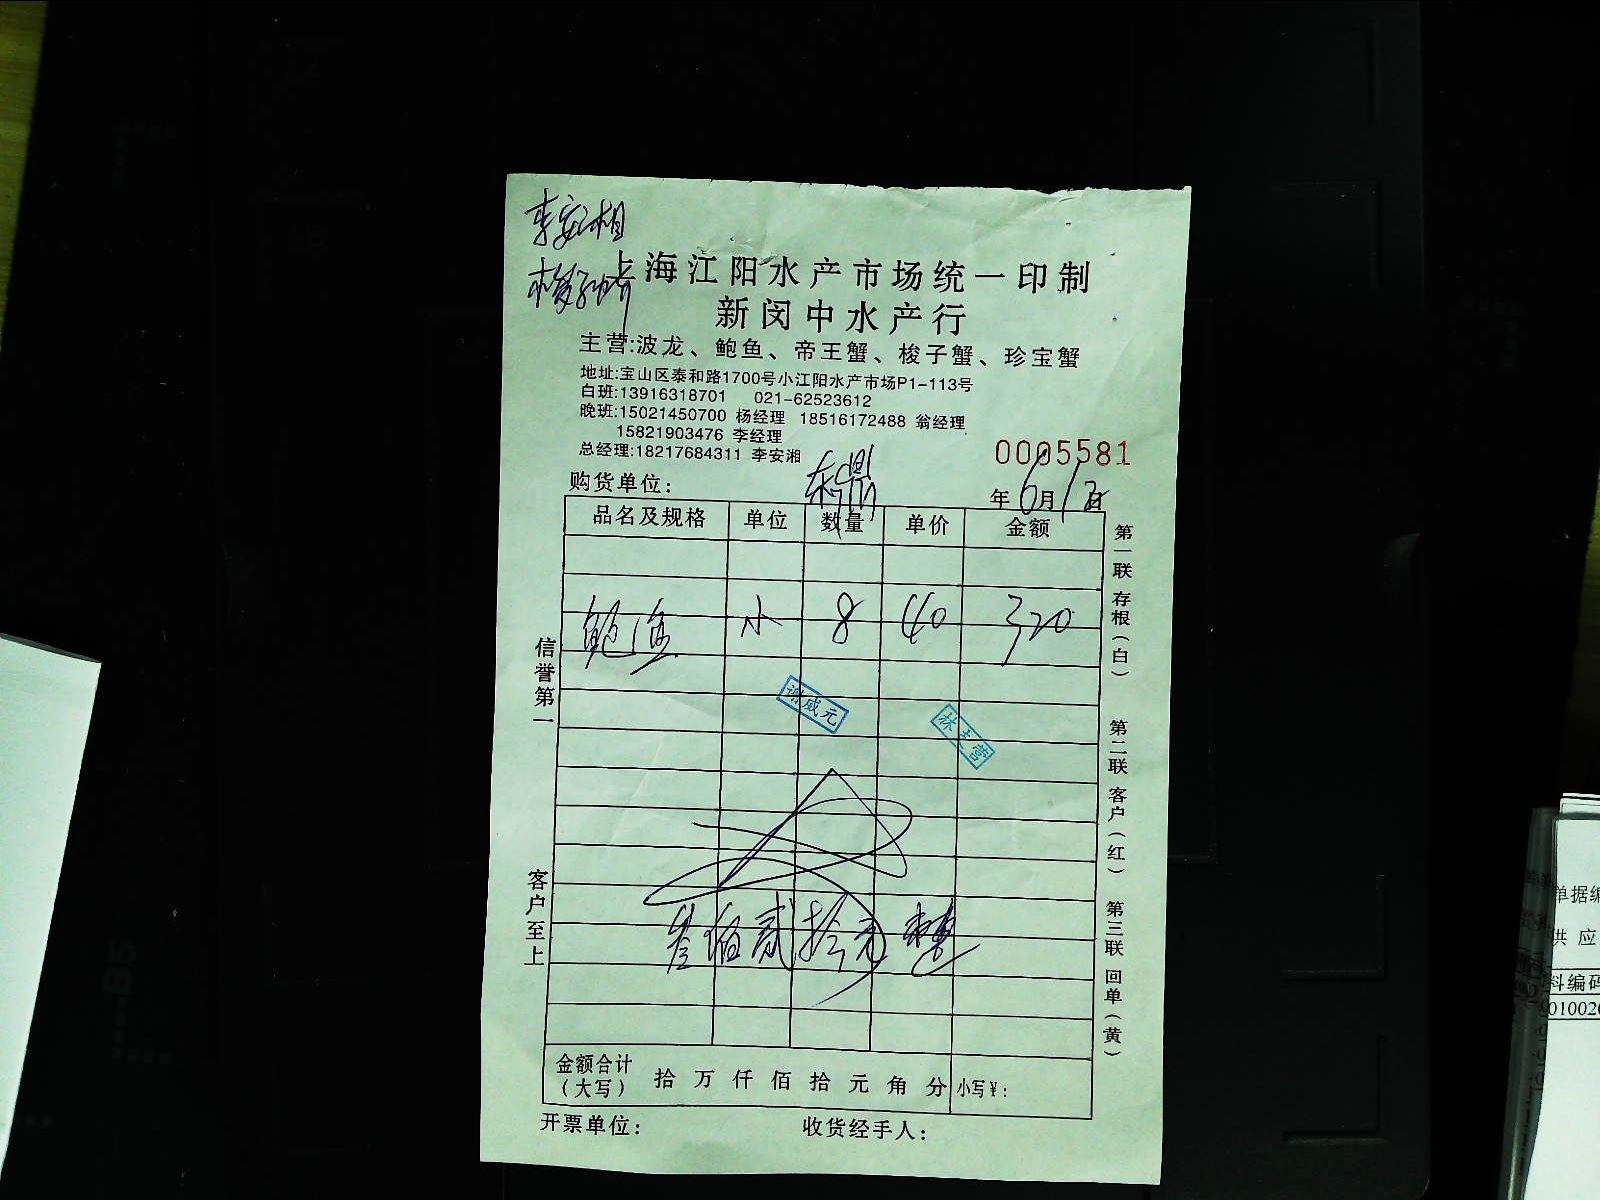 李安湘
上海江阳水产市场统一印制
新闵中水产行
主营:波龙、鲍鱼、帝王蟹、梭子蟹、珍宝蟹
地址:宝山区泰和路1700号小江阳水产市场P1-113号
白班:13916318701 021-62523612
晚班:15021450700 杨经理 18516172488 翁经理
15821903476 李经理
总经理:18217684311 李安湘
0005581
购货单位:
年6月1日
品名及规格 单位 数量 单价 金额
鲍鱼 小 8 40 320
谢咸元
林文营
叁佰贰拾元整
金额合计(大写) 拾 万 仟 佰 拾 元 角 分 小写¥:
开票单位: 收货经手人:
信誉第一
客户至上
第一联 存根(白)
第二联 客户(红)
第三联 回单(黄)
单据编
供 应
料编码